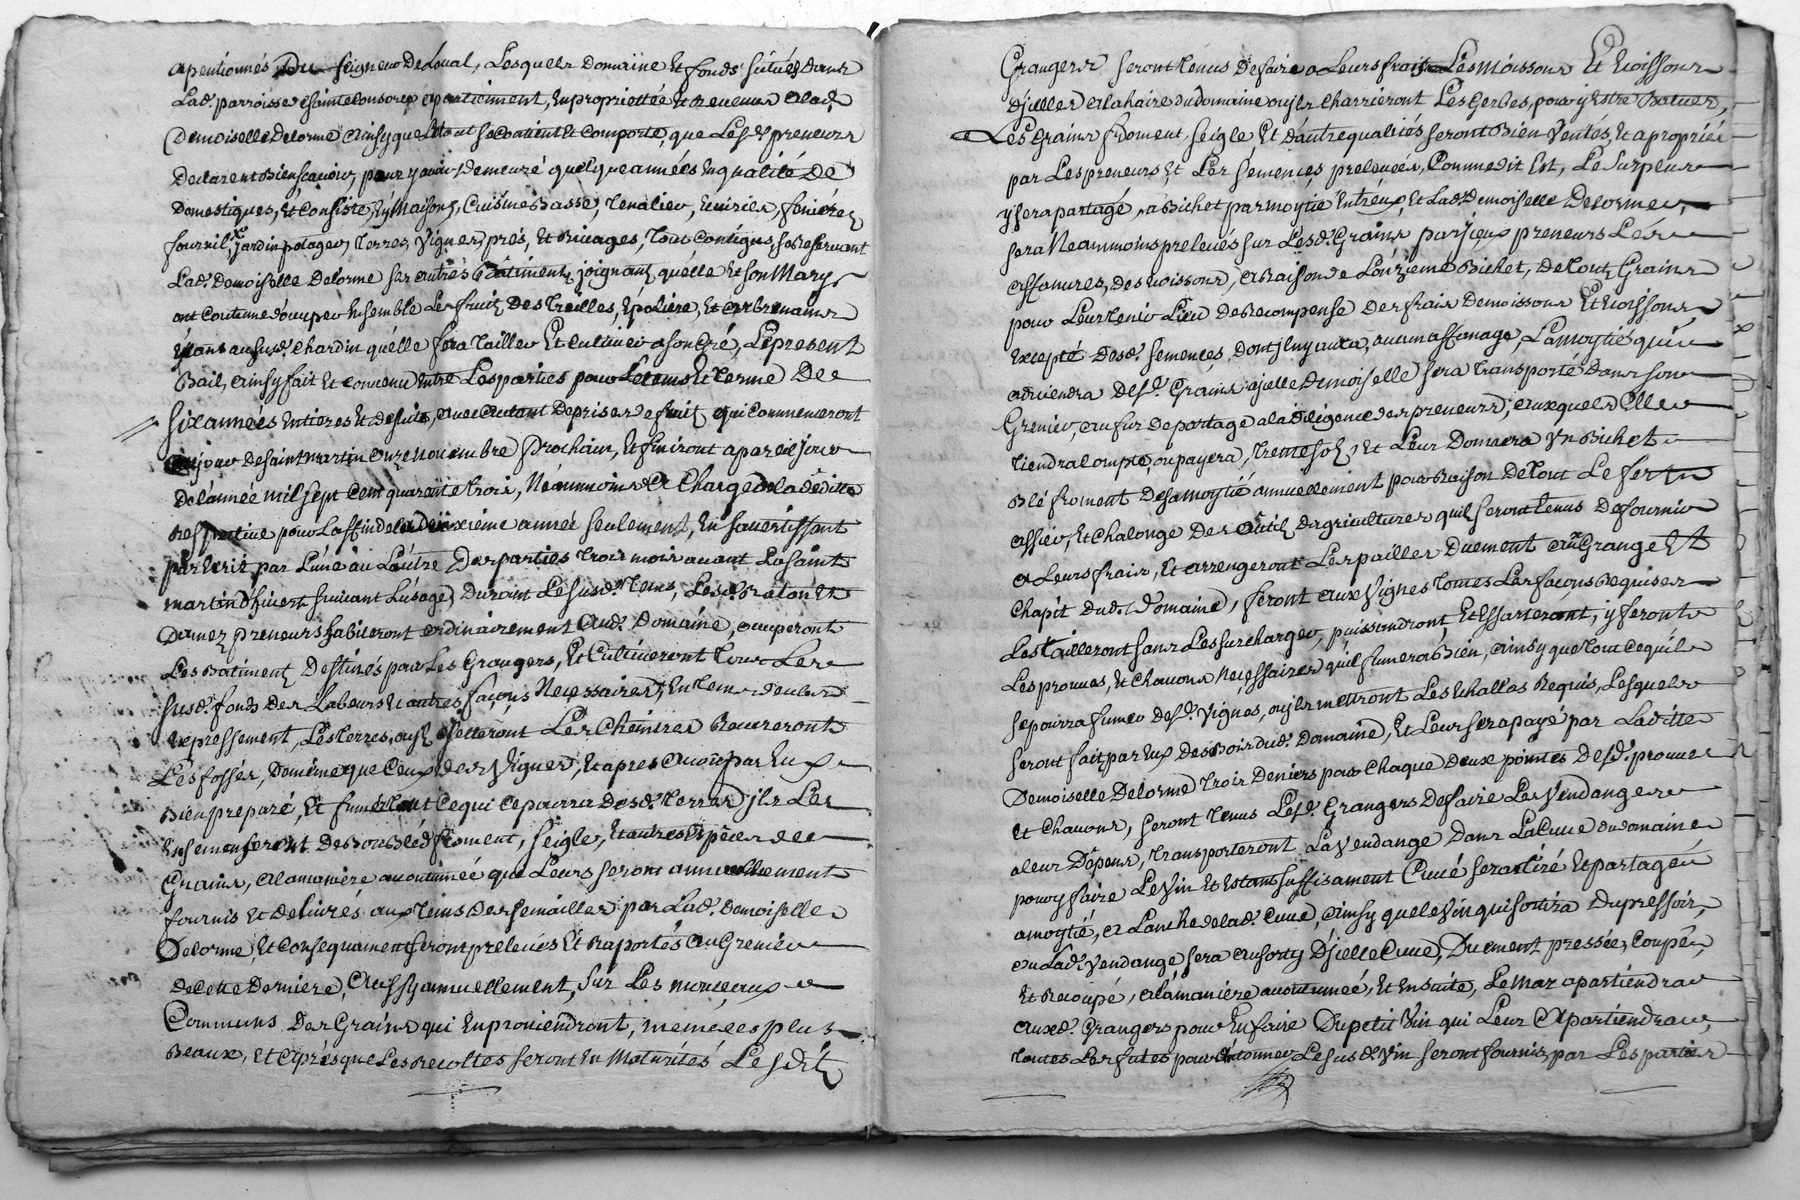 apentionnés Du seigneur De Loual, Lesquels Domaine Et fonds situés dans
Lad. parroisse Sainte Consorce apartiennent, En propriettée Et revenus a lad.
Demoiselle Delorme Ainsy que Le tout se contient Et comporte, que Lesd. preneurs
Declarent Bien scavoir, pour y avoir Demeuré quelque années En qualité De
Domestiques, Et Consiste En Maisons, Cuisine Basse, Tenalier, Ecuries, fenieres
fournil, jardin potager, Terres, Vignes, prés, Et Bruages, Tout Contigus, se Reservant
Lad. Demoiselle Delorme ses autres Batiments joignant, qu'elle Et son Mary
ont Coutume d'ocuper Ensemble Les fruits Des Treilles, Epaliere, Et arbres nains
Etant au susd. Chardin qu'elle fera Tailler Et Cultiver a son Gré, Le present
Bail, ainsy fait Et convenu Entre Les parties pour Le tems Et Terme De
Six années Entieres Et de suite, avec autant De prises de fruits qui Commenceront
au jour de saint Martin onze novembre prochain, Et finiront a pareil jour
De l'année mil sept Cent quarante trois, Néanmoins a la Charge De la d'editte
Respective pour La fin de la deuxième année seulement, En s'avertissant
par Ecrit par L'une au L'autre Des parties Trois mois avant La Saint
Martin d'hivert suivant L'usage, Durant Le susd. Tems, Lesd. Et
Damez preneurs habiteront ordinairement Aud. Domaine, ocuperont
Les Batiments Destinés pour Les Grangers, Et Cultiveront Tous Les
susd. fonds Des Labours Et autres façons Necessaires, En Tems
Expressement, Les Terres, ou ils jetteront Les Cheintres Recureront
Les fossés, De même que Ceux des Vignes, Et apres avoir par Eux
Bien preparé, Et fumé Tout Ce qui Ce pourra Desd. Terres, ils Les
Ensemenseront De Bon Bled froment, seigle, Et autres Espèces de
Grains, a la maniere acoutumée que Leurs seront annuellement
fournis Et delivrés aux Tems Des semailles par Lad. Demoiselle
Delorme, Et Consequament seront prelevés Et Raportés au Grenier
de Cette Derniere, Aussy annuellement, sur Les monceaux
Communs Des Grains qui En proviendront, même Les plus
Beaux, Et Après que Les Recoltes seront En Maturités Lesdits
Grangers seront Tenus De faire a Leurs frais Les Moissons Et
D'jcelles a la haire du domaine ou jls Charrieront Les Gerbes, pour y Estre Batues,
Les Grains froment, seigle Et d'autre qualités seront Bien Ventés, Et apropriés
par Les preneurs, Et Les semences prelevées, Comme dit Est, Le surplus
y sera partagé a Bichet par moytié Entreux, Et Lad. Demoiselle Delorme,
sera Neanmoins prelevés sur Lesd. Grains par jceux preneurs Les
affanures, des moissons, a Raison de L'onzieme Bichet, De Touts Grains
pour Leur Tenir Lieu de Recompense Des frais De moissons Et
Excepté Desd. semences, dont jl ny aura, aucun affanage, La moytié qui
adviendra Desd. Grains a jcelle Demoiselle sera Transporté dans son
Grenier, au fur De partage a la Diligence des preneurs, auxquels Elle
Tiendra Compte ou payera, Trente sols, Et Leur Donnera Un Bichet
Blé froment De sa moytié annuellement pour Raison De Tout Le fert
assier, Et Chalonge Des outils d'agricultures qu'ils seront tenus De fournir
a Leurs frais, Et arrengeront Les pailles Duement au Grange Et
Chapit dud. Domaine, feront aux Vignes Toutes Les façons Requises
Les Tailleront sans Les surcharger, puissandront, Et Essarteront, y feront
Les provues, Et Chavons Necessaires qu'il fumera Bien, ainsy que Tout Ce qu'il
se pourra fumer Desd. Vignes, ou jls mettront Les Echallas Requis, Lesquels
seront fait par Eux Des Bois dud. Domaine, Et Leur sera payé par Laditte
Demoiselle Delorme Trois Deniers pour Chaque deux pointes Desd. provues
Et Chavons, seront Tenus Lesd. Grangers De faire Les Vendanges
a leur Dépens, Transporteront La Vendange Dans La Cuve du domaine
pour y faire Le Vin Et Estant suffisament Cuvé sera tiré Et partagé
a moytié, a L'anche de lad. Cuve, ainsy que le vin qui sortira Du pressoir,
ou Lad. Vendange sera au sorty D'jcelle Cuve, Duement pressée, Coupée,
Et Recoupé, a la maniere acoutumée, Et Ensuite, Le Marc apartiendra
auxd. Grangers pour En faire Du petit Vin qui Leur Apartiendra,
Toutes Les futes pour Entonner Le susd. Vin seront fournis par Les parties